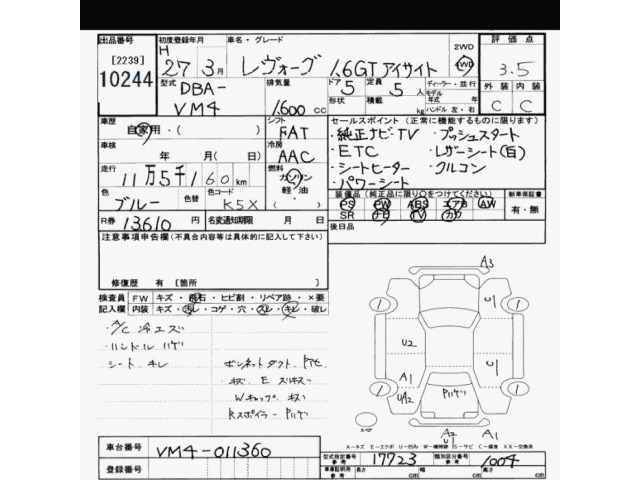 出品番号
[2239]
10244
初度登録年月
H
27年 3月
車名・グレード
レヴォーグ 1.6GT アイサイト
2WD
4WD
評価点
3.5
外装 内装
C C
型式
DBA-
VM4
排気量
1600 CC
ドア
5
形状
定員
5 人
積載
kg
ディーラー・並行
モデル
年式 年
ハンドル 左・右
車歴
自家用・( )
シフト
FAT
セールスポイント(正常に機能するものに限ります)
・純正ナビTV ・プッシュスタート
・ETC ・レザーシート(白)
・シートヒーター ・クルコン
・パワーシート
車検
年 月(日)
冷房
AAC
走行
11万5千160 km
燃料
ガソリン
軽・油
色
ブルー
色替
色コード
K5X
装備品(純正品に限り○をつけてください)
PS PW ABS エアB AW
SR ナビ TV カワ
新車保証書
有・無
R券
13610 円
名変通知期限 月 日
後日品
注意事項申告欄(不具合内容等は具体的に記入して下さい)
修復歴 有 [箇所 ]
検査員
記入欄
FW キズ・飛石・ヒビ割・リペア跡・×要
内装 キズ・汚レ・コゲ・穴・スレ・キレ・破レ
・A/C 冷エズ
・ハンドル ハゲ
シート キレ
A3
1
U1
1
U2
U1
A1
UA2
1
1
A2
U1
A1
A-キズ E-エクボ U-凹み W-補修跡 S-サビ C-腐食 XX-交換済
車台番号
VM4-011360
登録番号
型式指定番号
参考
17723
類別区分番号
参考
1004
車車証明用
参考
長さ cm
幅 cm
高さ cm